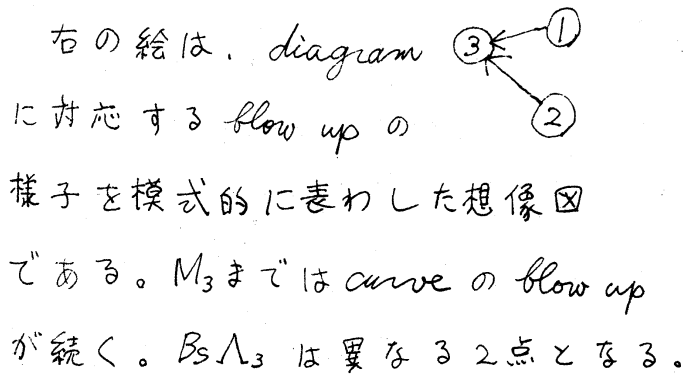 右の絵は、diagram
③ ① ②
に対応する blow up の
様子を模式的に表わした想像図
である。M₃までは curve の blow up
が続く。Bs Λ₃ は異なる2点となる。